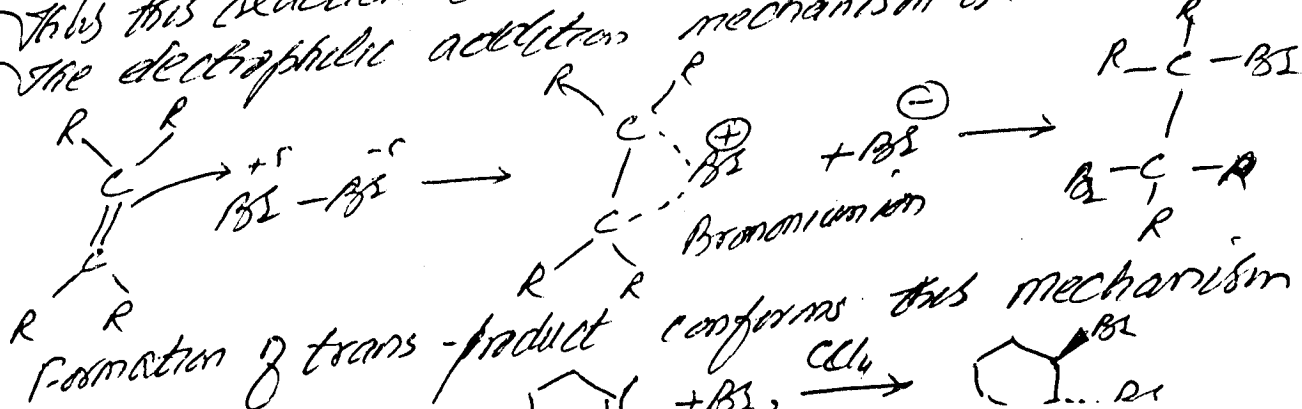 Thus this reaction
The electrophilic addition mechanism is
R R R R R
R–C–Br
C +δ Br – Br -δ → C ⊕ Br + Br ⊖ →
C C Br–C–R
R R R R Bromonium ion R
Formation of trans-product conforms this mechanism
+Br2 CCl4 → Br
Br